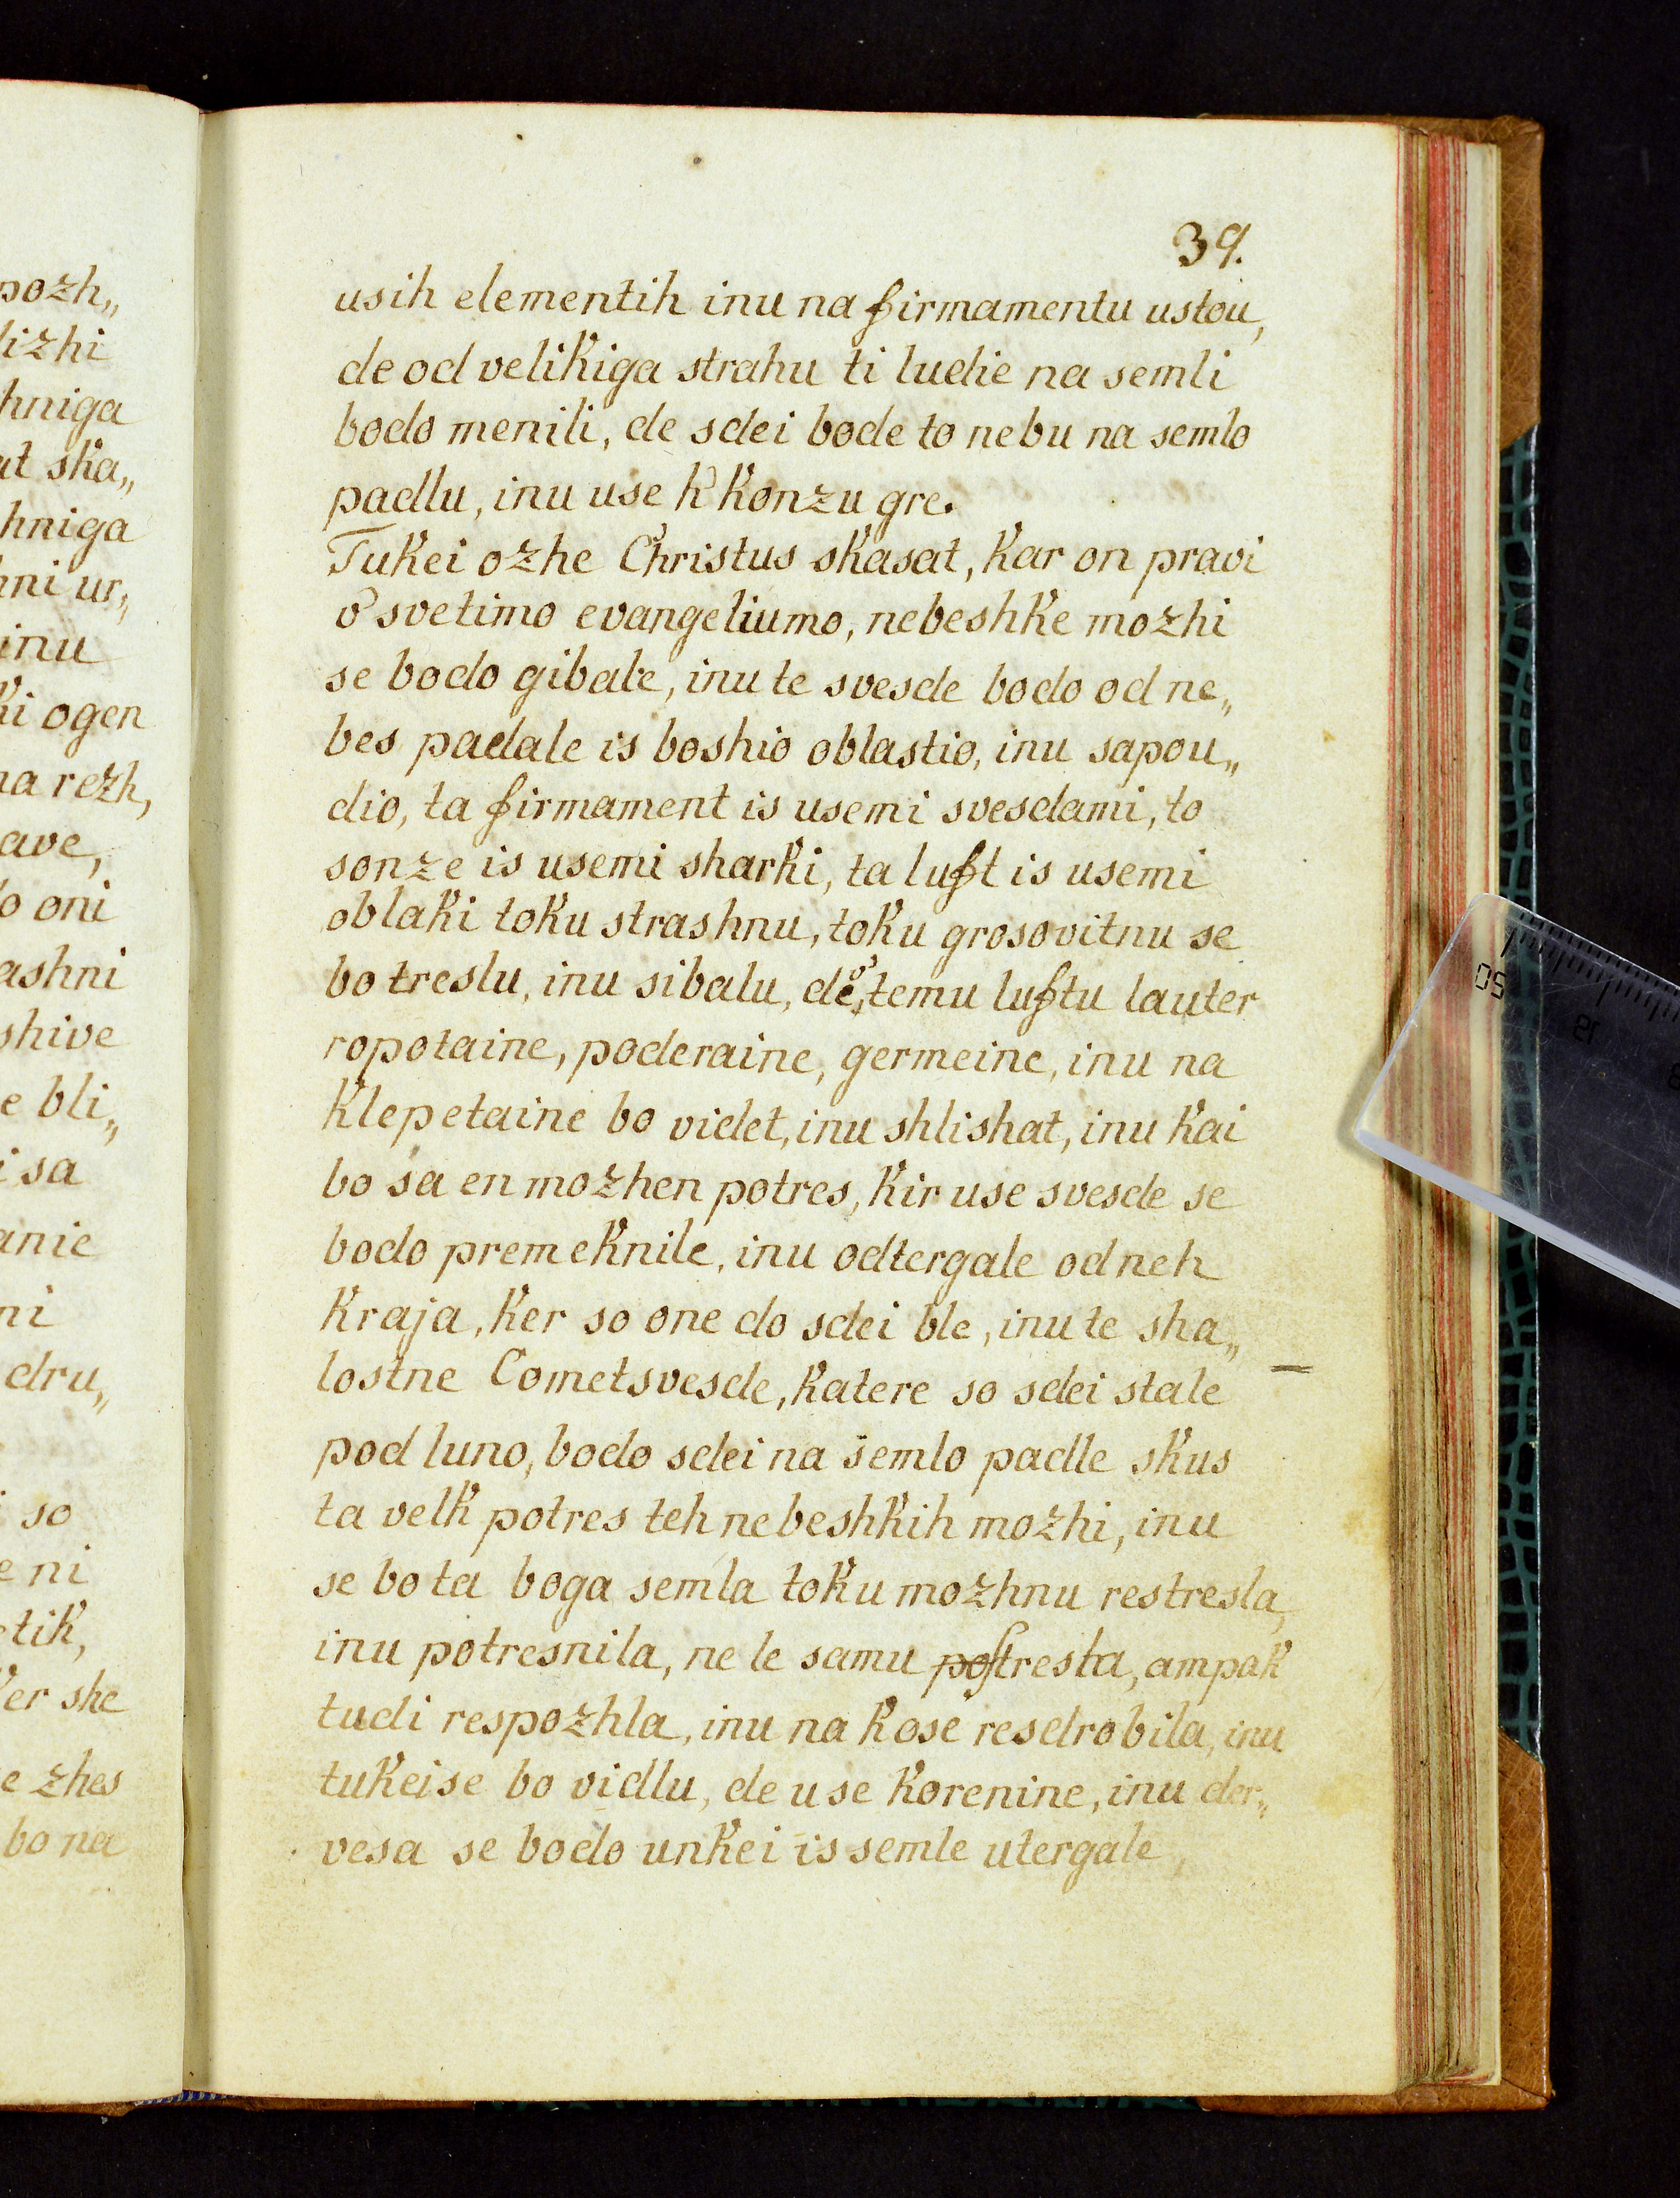 pozh„
lizhi
hniga
at ska„
hniga
hni ur„
inu
ki ogen
na rezh,
ave,
o oni
ashni
shive
e bli„
i sa
anie
ni
dru„
i so
e ni
tik,
ker she
e zhes
bo na
39.
usih elementih inu na firmamentu ustou,
de od velikiga strahu ti ludie na semli
bodo menili, de sdei bode to nebu na semlo
padlu, inu use k' konzu gre.
Tukei ozhe Christus skasat, kar on pravi
v' svetimo evangeliumo, nebeshke mozhi
se bodo gibale, inu te svesde bodo od ne„
bes padale is boshio oblastio, inu sapou„
dio, ta firmament is usemi svesdami, to
sonze is usemi sharki, ta luft is usemi
oblaki toku strashnu, toku grosovitnu se
bo treslu, inu sibalu, de v' temu luftu lauter
ropotaine, poderaine, germeine, inu na
klepetaine bo videt, inu shlishat, inu kai
bo sa en mozhen potres, kir use svesde se
bodo premeknile, inu odtergale od neh
kraja, ker so one do sdei ble, inu te sha„
lostne Cometsvesde, katere so sdei stale
pod luno, bodo sdei na semlo padle skus
ta velk potres teh nebeshkih mozhi, inu
se bo ta boga semla toku mozhnu restresla,
inu potresnila, ne le samu potresla, ampak
tudi respozhla, inu na kose resdrobila, inu
tukei se bo vidlu, de use korenine, inu der„
vesa se bodo unkei is semle utergale,
50